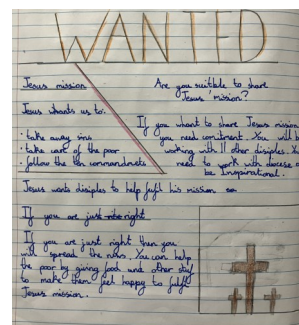 WANTED
Jesus mission
Jesus wants us to:
• take away sins
• take care of the poor
• follow the ten commandments
Are you suitible to share
Jesus' mission?
If you want to share Jesus mission
you need comitment. You will be
working with 11 other disiples. You
need to work with
be Inspirational.
Jesus wants disiples to help fulfil his mission
If you are just right
If you are just right then you
will spread the news. You can help
the poor by giving food and other stuff
to make them feel happy to fulfil
Jesus mission.